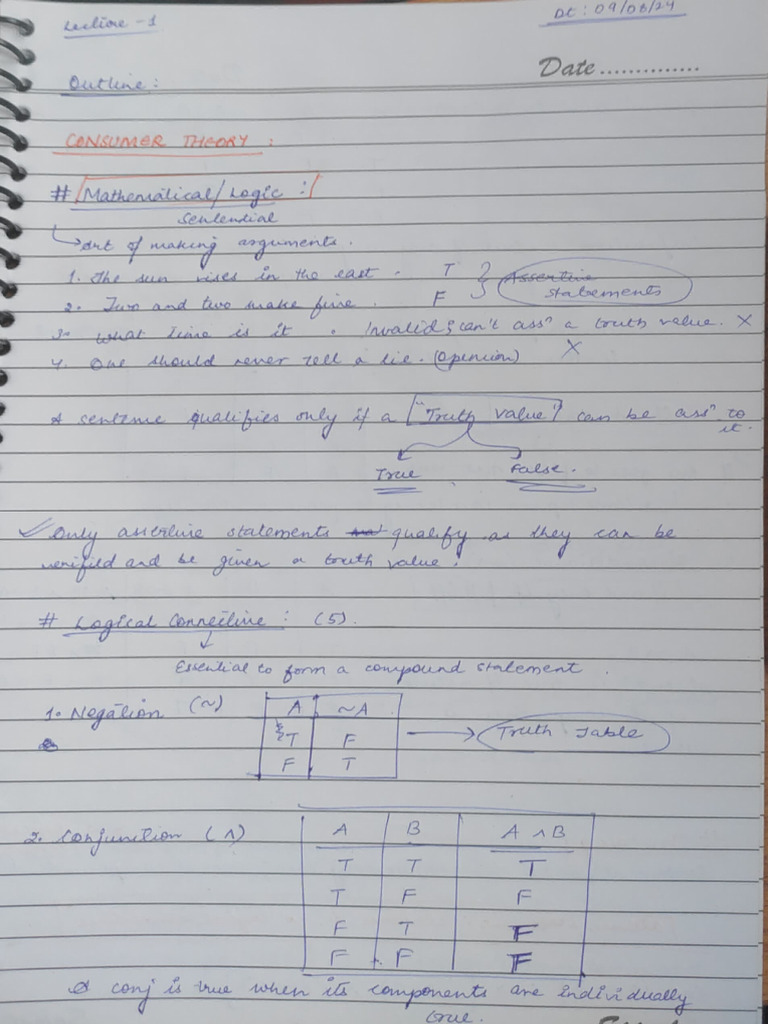 Lecture - 1
Dt : 09/08/24
Date ..............
Outline :
CONSUMER THEORY :
# Mathematical / Logic :
Sentential
Art of making arguments.
1. The sun rises in the east. T
2. Two and two make five. F
Assertive statements
3. What time is it. Invalid; can't assn a truth value. X
4. One should never tell a lie. (Openion) X
A sentense qualifies only if a "Truth value" can be assn to it.
True False.
Only assertive statements qualify as they can be
verifild and be given a truth value.
# Logical Connective : (5).
Essential to form a compound statement.
1. Negation (~)
A ~A
T F
F T
Truth Table
2. Conjunction (∧)
A B A ∧ B
T T T
T F F
F T F
F F F
A conj is true when its components are individually
true.